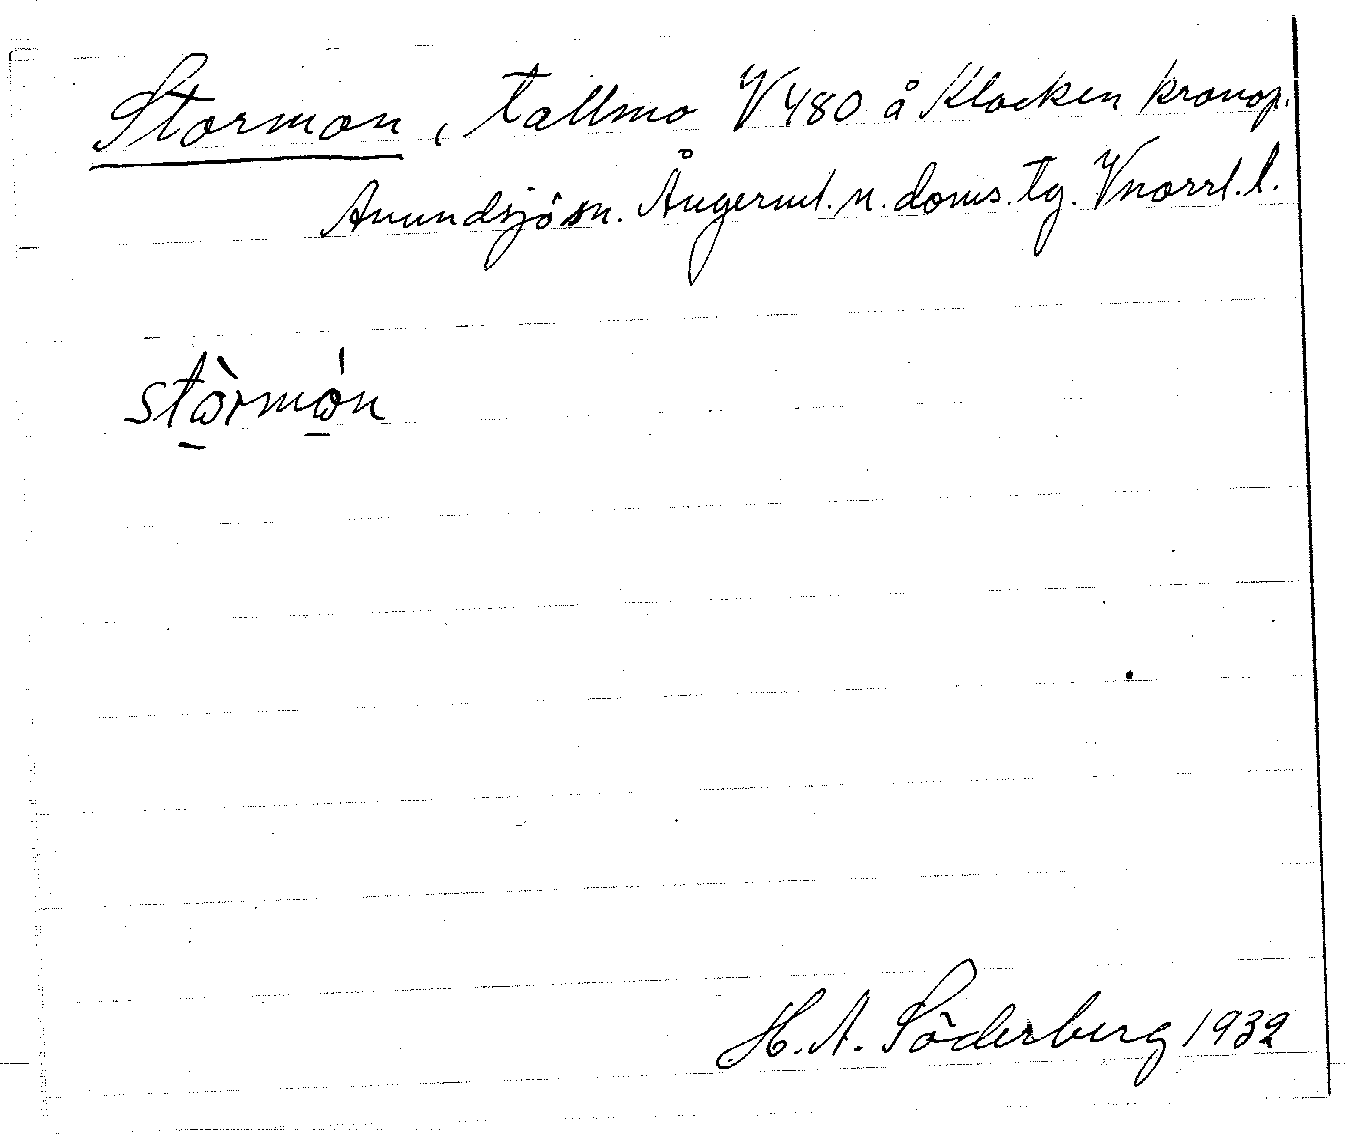 Stormon, tallmo V 480 å Klocken kronop.
Anundsjö sn. Ångerml. n. doms. tg. Vnorrl. l.
stòrmón
H. A. Söderberg 1932